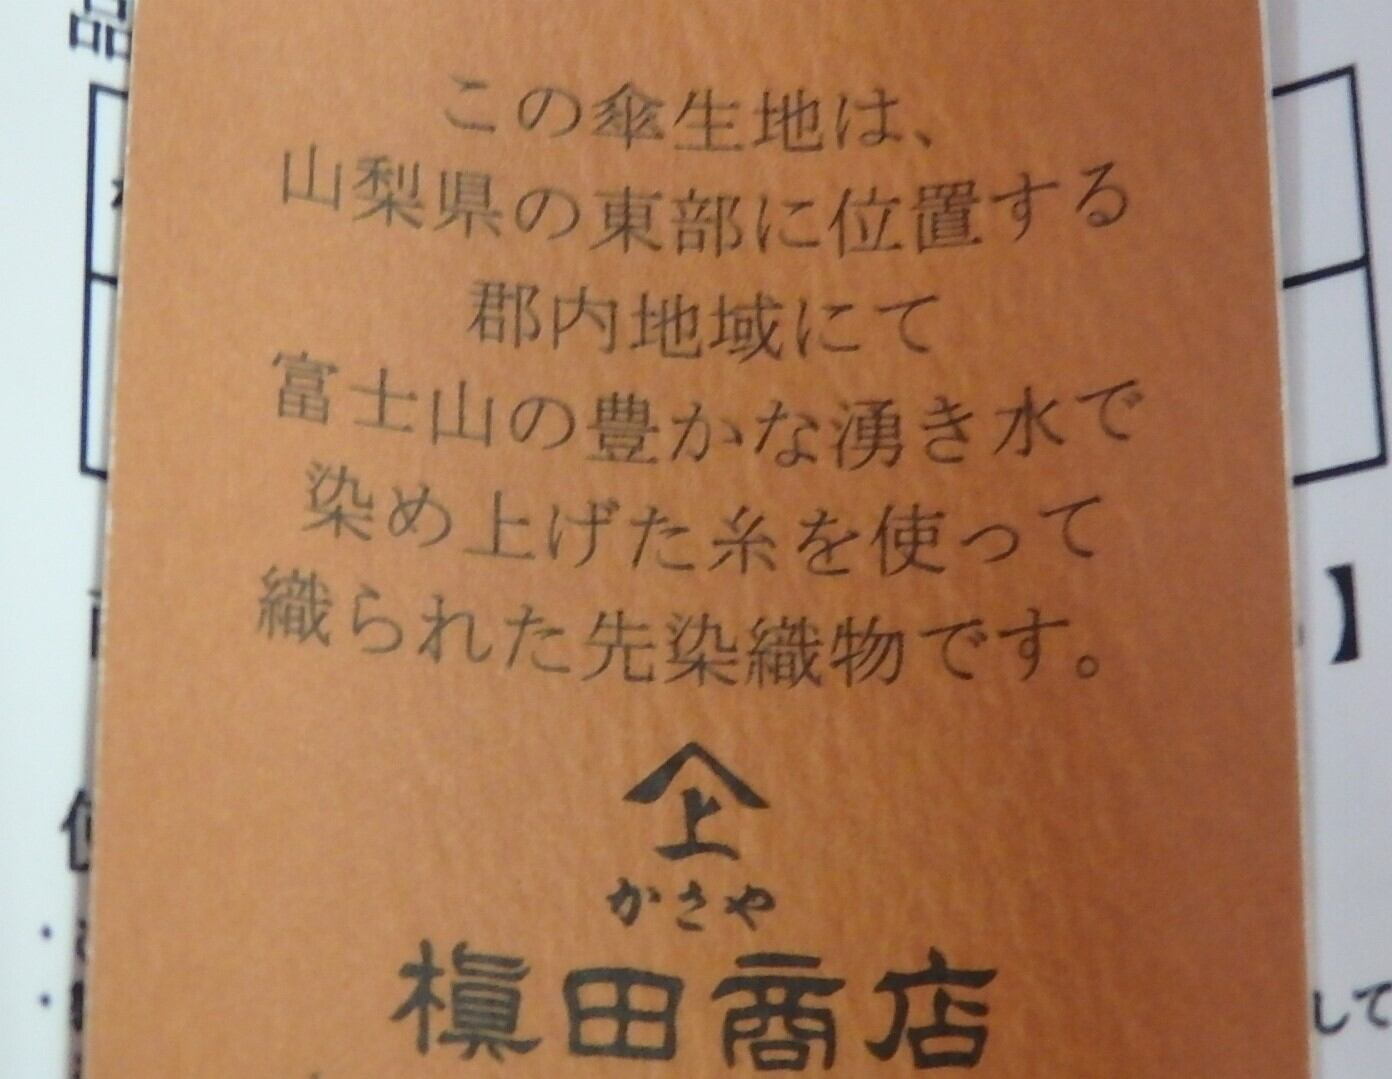 品
この傘生地は、
山梨県の東部に位置する
郡内地域にて
富士山の豊かな湧き水で
染め上げた糸を使って
織られた先染織物です。
】
上
かさや
槇田商店
・
・
して